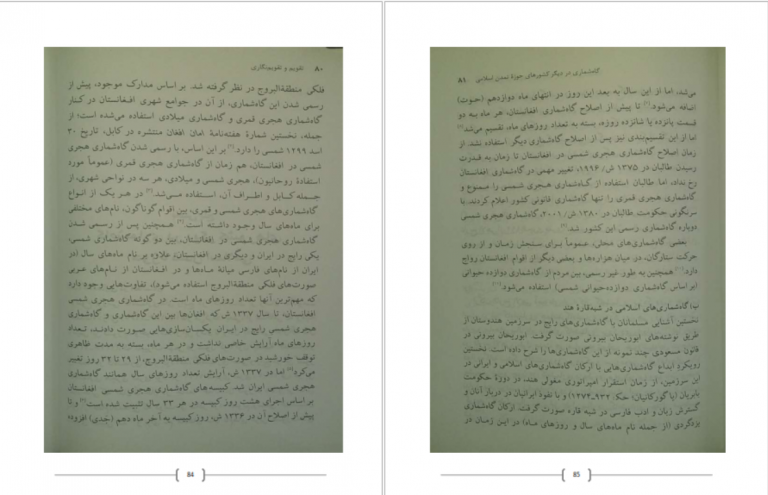 ۸۰ تقویم و تقویم‌نگاری
فلکی منطقةالبروج در نظر گرفته شد. بر اساس مدارک موجود، پیش از
رسمی شدن این گاه‌شماری، از آن در جوامع شهری افغانستان در کنار
گاه‌شماری هجری قمری و گاه‌شماری میلادی استفاده می‌شده است؛ از
جمله، نخستین شمارهٔ هفته‌نامهٔ امان افغان منتشره در کابل، تاریخ ۲۰
اسد ۱۲۹۹ شمسی را دارد. بر این اساس، با رسمی شدن گاه‌شماری هجری
شمسی در افغانستان، هم زمان از گاه‌شماری هجری قمری (عموماً مورد
استفادهٔ روحانیون)، هجری شمسی و میلادی، هر سه در نواحی شهری، از
جمله کابل و اطراف آن، استفاده می‌شد. در هر یک از انواع
گاه‌شماری‌های هجری شمسی و قمری، بین اقوام گوناگون، نام‌های مختلفی
برای ماه‌های سال وجود داشته است. همچنین پس از رسمی شدن
گاه‌شماری هجری شمسی در افغانستان، بین دو گونه گاه‌شماری شمسی،
یکی رایج در ایران و دیگری در افغانستان، علاوه بر نام ماه‌های سال (در
ایران از نام‌های فارسی میانهٔ ماه‌ها و در افغانستان از نام‌های عربی
صورت‌های فلکی منطقةالبروج استفاده می‌شود)، تفاوت‌هایی وجود دارد
که مهم‌ترین آنها تعداد روزهای ماه است. در گاه‌شماری هجری شمسی
افغانستان، تا سال ۱۳۳۷ ش که افغان‌ها بین این گاه‌شماری و گاه‌شماری
هجری شمسی رایج در ایران یکسان‌سازی‌هایی صورت دادند، تعداد
روزهای ماه آرایش خاصی نداشت و در هر ماه، بسته به مدت ظاهری
توقف خورشید در صورت‌های فلکی منطقةالبروج، از ۲۹ تا ۳۲ روز تغییر
می‌کرد اما در ۱۳۳۷ ش، آرایش تعداد روزهای سال همانند گاه‌شماری
هجری شمسی ایران شد. کبیسه‌های گاه‌شماری هجری شمسی افغانستان
بر اساس اجرای هشت روز کبیسه در هر ۳۳ سال تثبیت شده است و تا
پیش از اصلاح آن در ۱۳۳۶ ش، روز کبیسه به آخر ماه دهم (جدی) افزوده
84
گاه‌شماری در دیگر کشورهای حوزهٔ تمدن اسلامی ۸۱
می‌شد، اما از این سال به بعد این روز در انتهای ماه دوازدهم (حوت)
اضافه می‌شود. تا پیش از اصلاح گاه‌شماری افغانستان، هر ماه به دو
قسمت پانزده یا شانزده روزه، بسته به تعداد روزهای ماه، تقسیم می‌شد
اما از این تقسیم‌بندی نیز پس از اصلاح گاه‌شماری دیگر استفاده نشد. از
زمان اصلاح گاه‌شماری هجری شمسی در افغانستان تا زمان به قدرت
رسیدن طالبان در ۱۳۷۵ ش/ ۱۹۹۶، تغییر مهمی در گاه‌شماری افغانستان
رخ نداد، اما طالبان استفاده از گاه‌شماری هجری شمسی را ممنوع و
گاه‌شماری هجری قمری را تنها گاه‌شماری قانونی کشور اعلام کردند. با
سرنگونی حکومت طالبان در ۱۳۸۰ ش/ ۲۰۰۱، گاه‌شماری هجری شمسی
دوباره گاه‌شماری رسمی این کشور شد.
بعضی گاه‌شماری‌های محلی، عموماً برای سنجش زمان و از روی
حرکت ستارگان، در میان هزاره‌ها و بعضی دیگر از اقوام افغانستان رواج
دارد همچنین به طور غیر رسمی، بین مردم از گاه‌شماری دوازده حیوانی
(بر اساس گاه‌شماری دوازده حیوانی شمسی) استفاده می‌شود.
ب) گاه‌شماری‌های اسلامی در شبه‌قارهٔ هند
نخستین آشنایی مسلمانان با گاه‌شماری‌های رایج در سرزمین هندوستان از
طریق نوشته‌های ابوریحان بیرونی صورت گرفت. ابوریحان بیرونی در
قانون مسعودی چند نمونه از این گاه‌شماری‌ها را شرح داده است. نخستین
رویکرد ابداع گاه‌شماری‌هایی با ارکان گاه‌شماری‌های اسلامی و ایرانی در
این سرزمین، از زمان استقرار امپراتوری مغولی هند، در دورهٔ حکومت
بابریان (یا گورکانیان؛ حک: ۹۳۲ـ۱۲۷۴) و با نفوذ ایرانیان در دربار آنان و
گسترش زبان و ادب فارسی در شبه قاره صورت گرفت. ارکان گاه‌شماری
یزدگردی (از جمله نام ماه‌های سال و روزهای ماه) در این زمان در
85